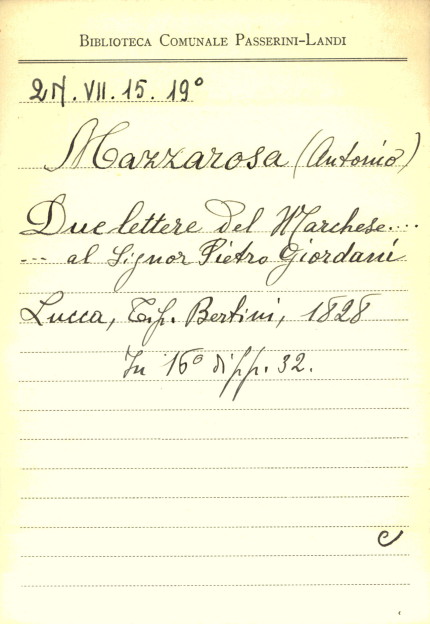 BIBLIOTECA COMUNALE PASSERINI-LANDI
2N. VII. 15. 19°
Mazzarosa (Antonio)
Due lettere del Marchese...
--- al Signor Pietro Giordani
Lucca, Tip. Bertini, 1828
In 16° di pp. 32.
c